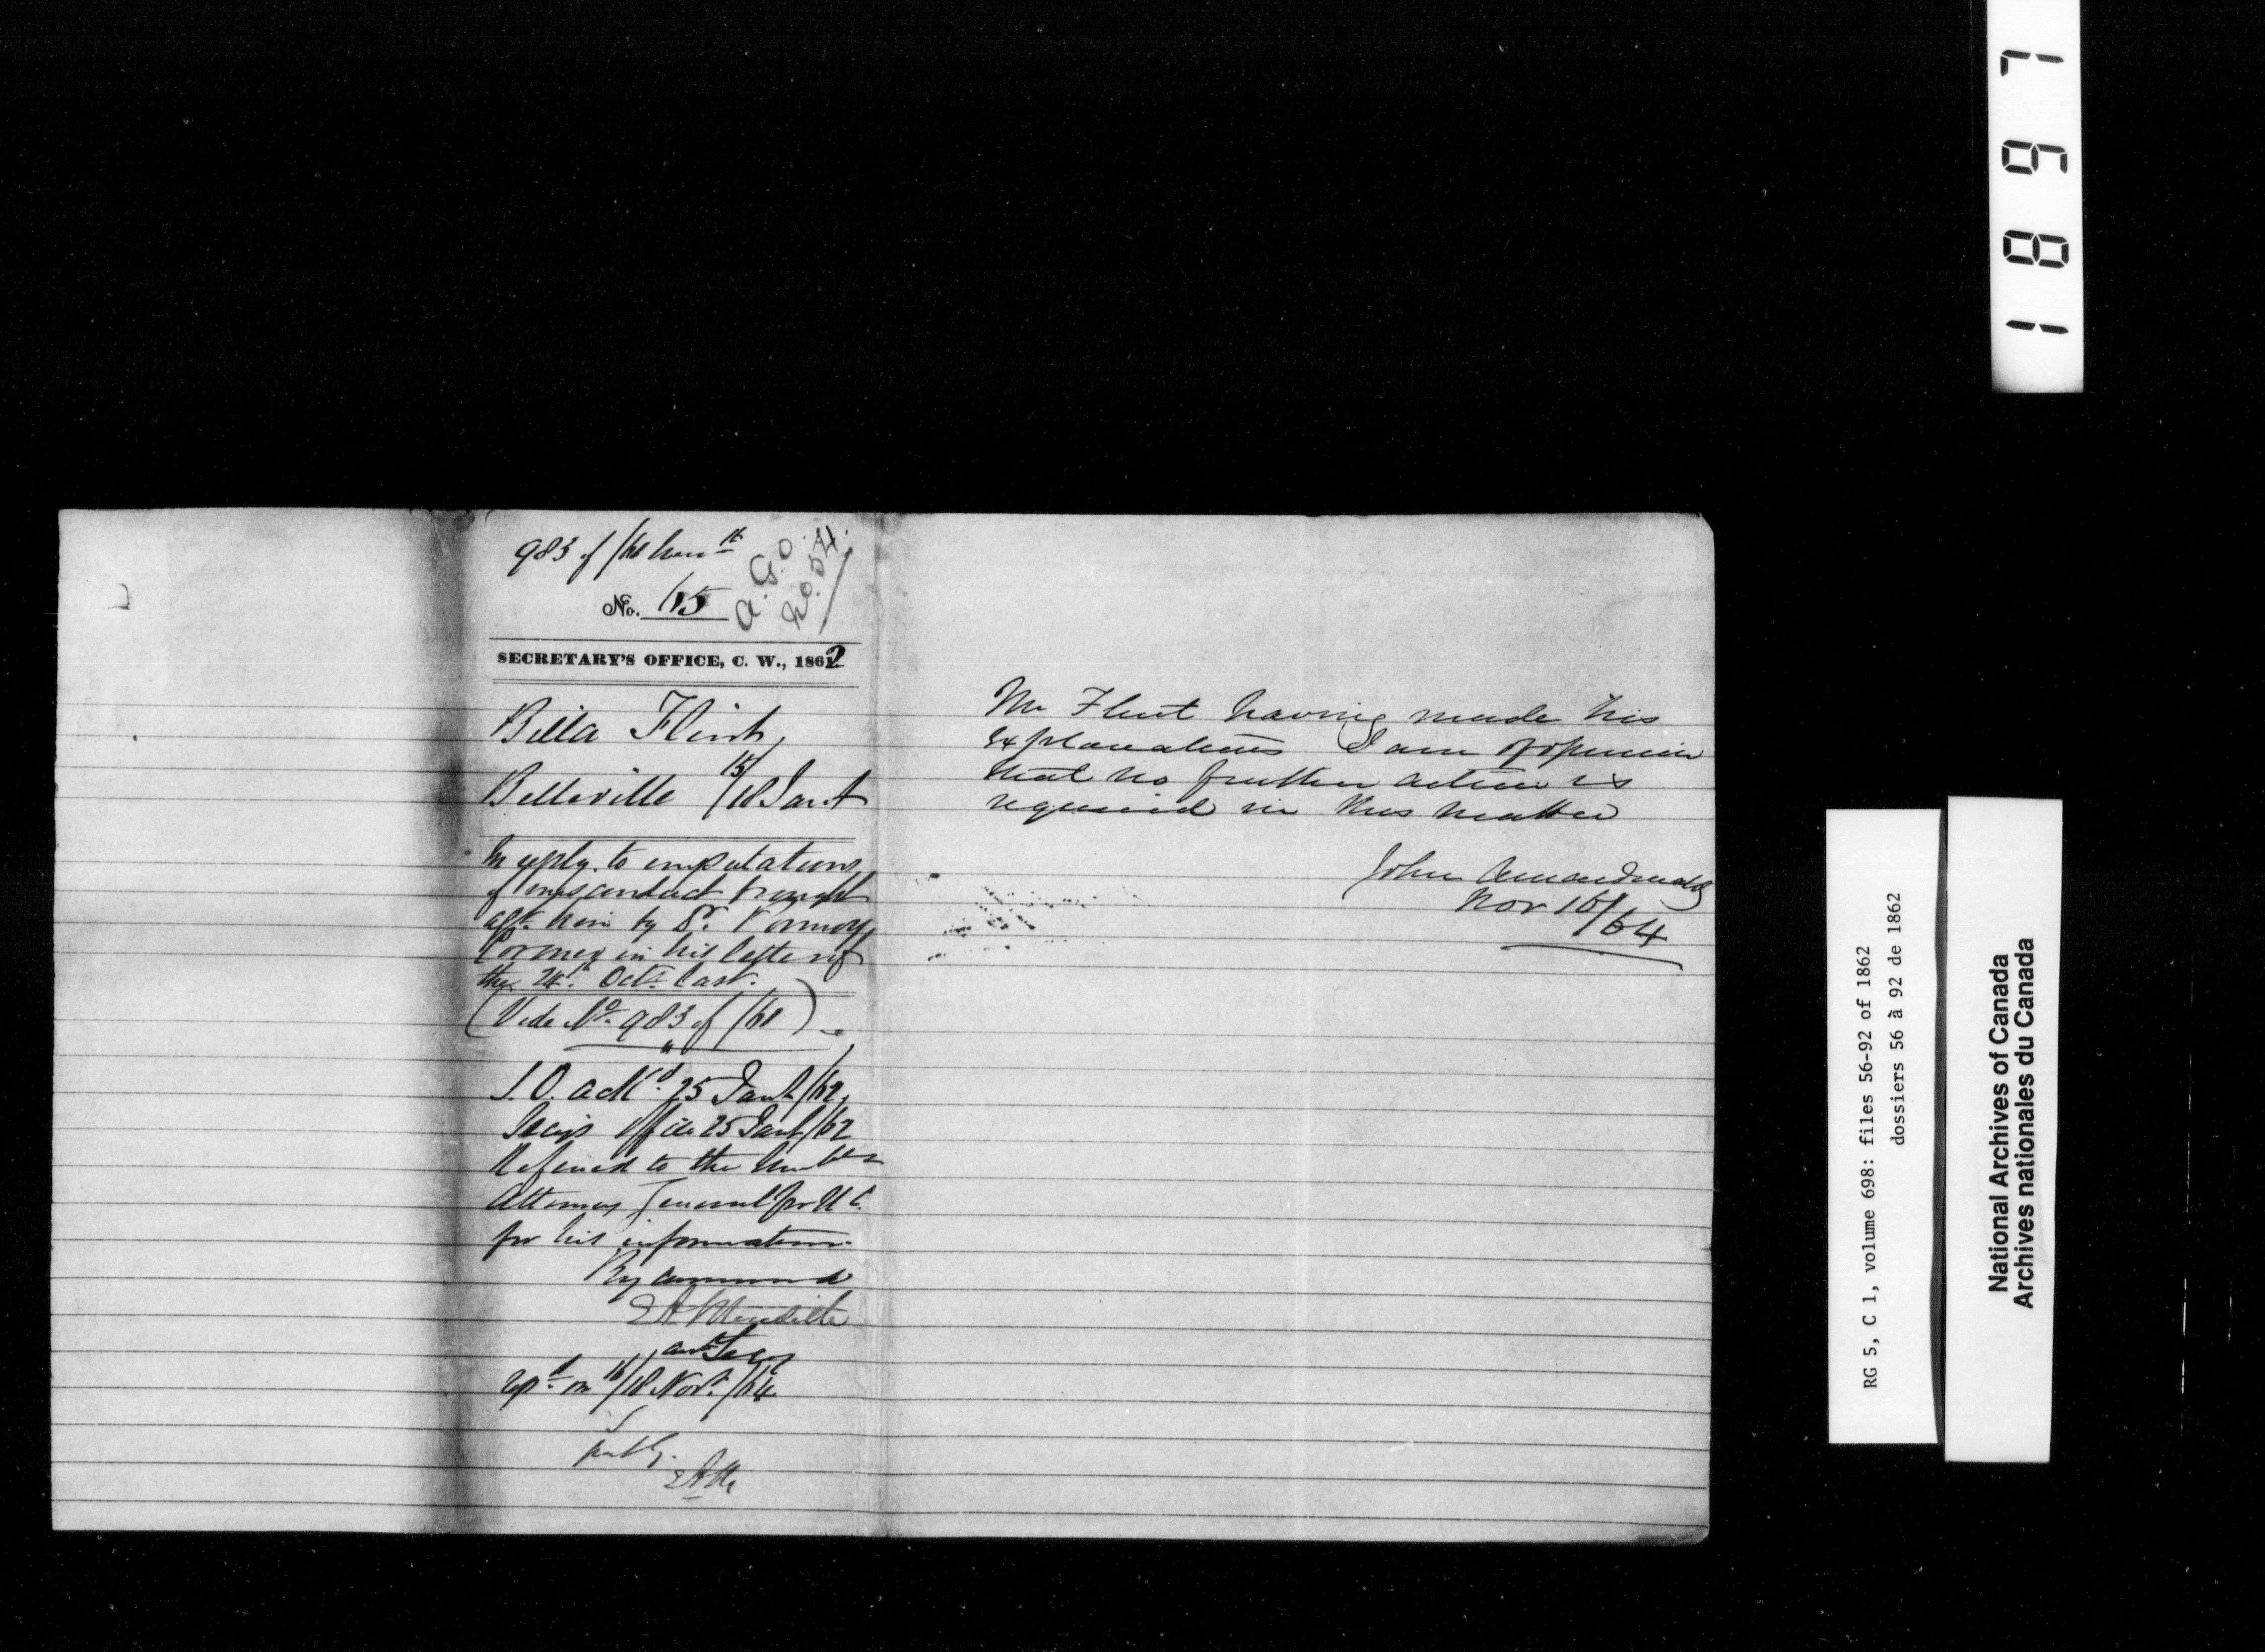 983 of /61 herewth
No. 65
A.G.O.
No. 54.
SECRETARY'S OFFICE, C. W., 1862
Billa Flint,
Belleville 15/18 Jan.
In reply to imputations
of misconduct brought
agt. him by Dr.
Coroner in his letter of
the 24th Octr. last.
(Vide No. 983 of /61)
ackd. 25 Jany/62,
Secy's Office 25 Jany/62
Referred to the Honble
Attorney General for U C.
for his information.
By command
E A Meredith
Asst Secy
Repd. on 16/18 Novr. /64
EAM
Mr Flint having made his
explanations I am of opinion
that no further action is
required in this matter
John A Macdonald
Nov 16/64
1897
RG 5, C 1, volume 698: files 56-92 of 1862
dossiers 56 à 92 de 1862
National Archives of Canada
Archives nationales du Canada